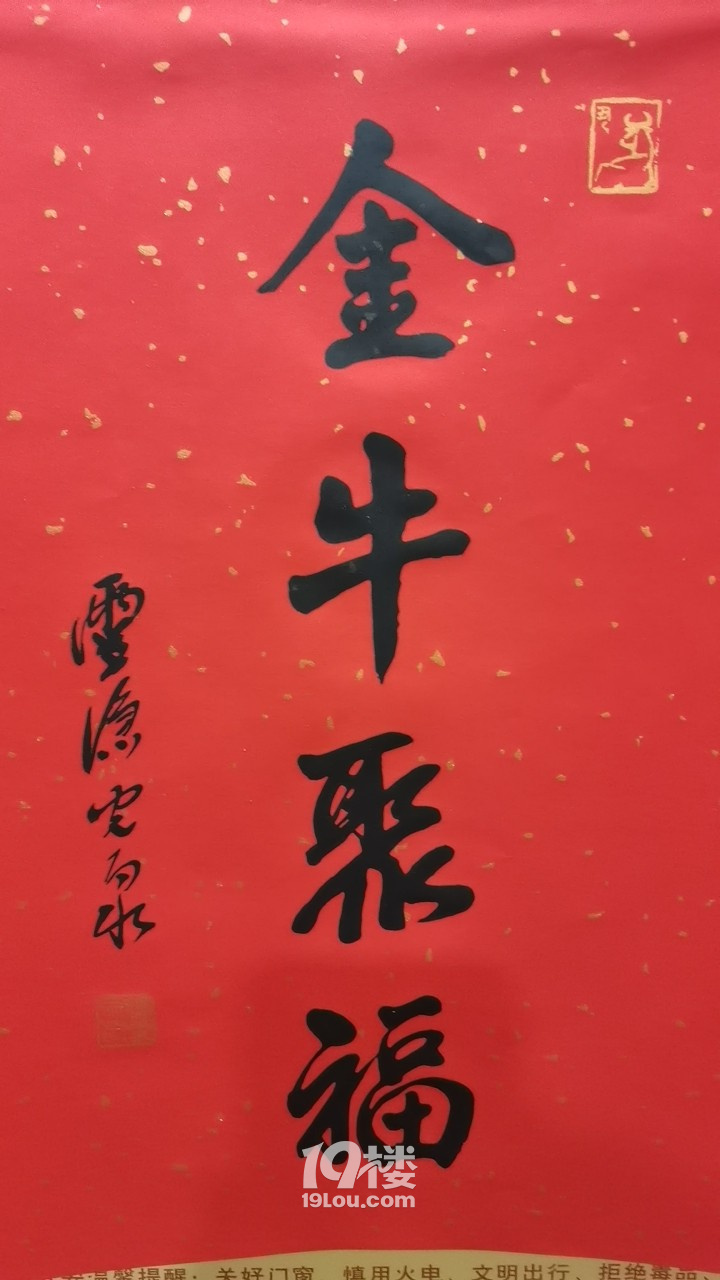 金牛聚福
靈隱光泉
19楼
19Lou.com
温馨提醒：关好门窗、慎用火电、文明出行、拒绝毒品